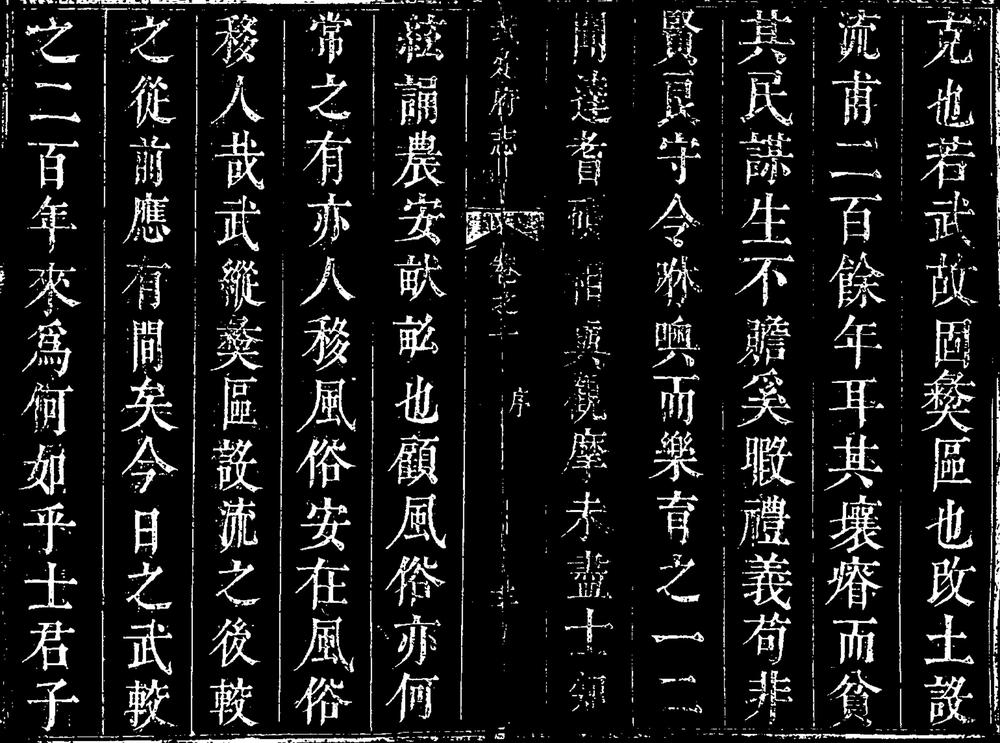 克也若武故固彝區也改土設
流甫二百餘年耳其壤瘠而貧
其民謀生不贍奚暇禮義苟非
賢良守令咻噢而樂育之一二
聞達耆碩相與觀摩未盡士知
武定府志
卷之
序
絃誦農安畎畝也顧風俗亦何
常之有亦人移風俗安在風俗
移人哉武縱彝區設流之後較
之從前應有間矣今日之武較
之二百年來為何如乎士君子